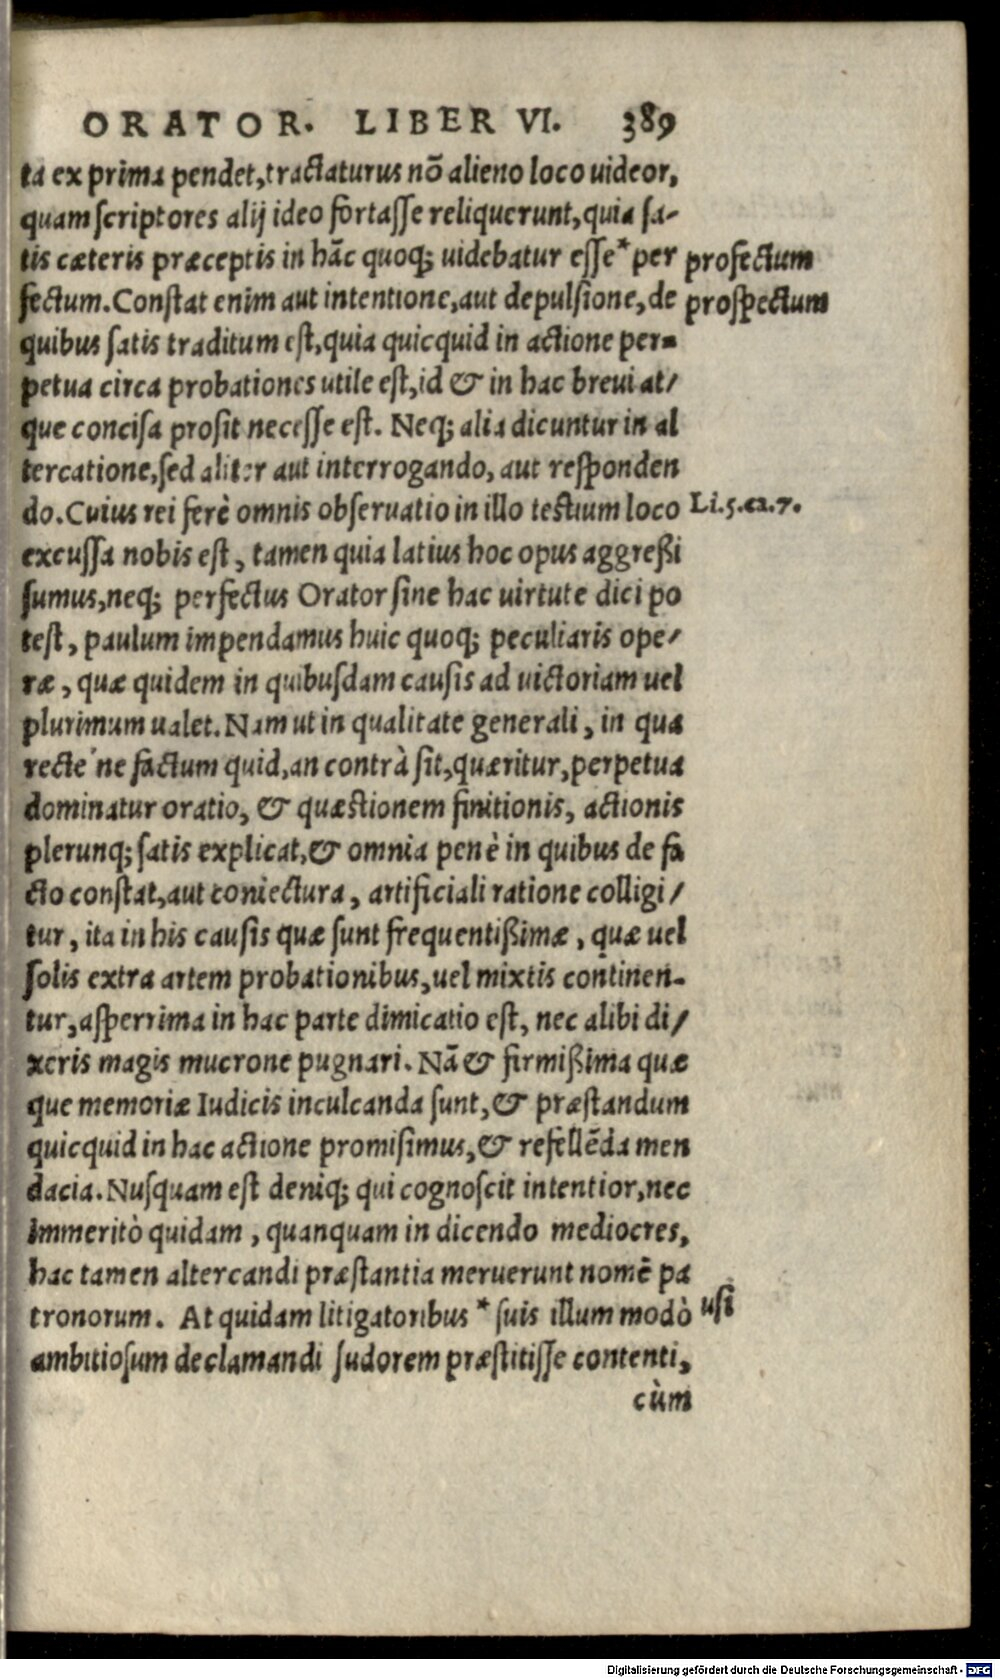 ORATOR. LIBER VI. 389
ta ex prima pendet, tractaturus nõ alieno loco uideor,
quam scriptores alij ideo fortasse reliquerunt, quia sa-
tis cæteris præceptis in hãc quoq; uidebatur esse * per profectum
fectum. Constat enim aut intentione, aut depulsione, de prospectum
quibus satis traditum est, quia quicquid in actione per-
petua circa probationes utile est, id & in hac breui at/
que concisa prosit necesse est. Neq; alia dicuntur in al
tercatione, sed aliter aut interrogando, aut responden
do. Cuius rei ferè omnis obseruatio in illo testium loco Li.5.ca.7.
excussa nobis est, tamen quia latius hoc opus aggreßi
sumus, neq; perfectus Orator sine hac uirtute dici po
test, paulum impendamus huic quoq; peculiaris ope/
ræ, quæ quidem in quibusdam causis ad uictoriam uel
plurimum ualet. Nam ut in qualitate generali, in qua
recte'ne factum quid, an contrà sit, quæritur, perpetua
dominatur oratio, & quæstionem finitionis, actionis
plerunq; satis explicat, & omnia penè in quibus de fa
cto constat, aut coniectura, artificiali ratione colligi/
tur, ita in his causis quæ sunt frequentißimæ, quæ uel
solis extra artem probationibus, uel mixtis continen-
tur, asperrima in hac parte dimicatio est, nec alibi di/
xeris magis mucrone pugnari. Nã & firmißima quæ
que memoriæ Iudicis inculcanda sunt, & præstandum
quicquid in hac actione promisimus, & refellẽda men
dacia. Nusquam est deniq; qui cognoscit intentior, nec
immeritò quidam, quanquam in dicendo mediocres,
hac tamen altercandi præstantia meruerunt nomẽ pa
tronorum. At quidam litigatoribus * suis illum modò usi
ambitiosum declamandi sudorem præstitisse contenti,
cùm
Digitalisierung gefördert durch die Deutsche Forschungsgemeinschaft - DFG